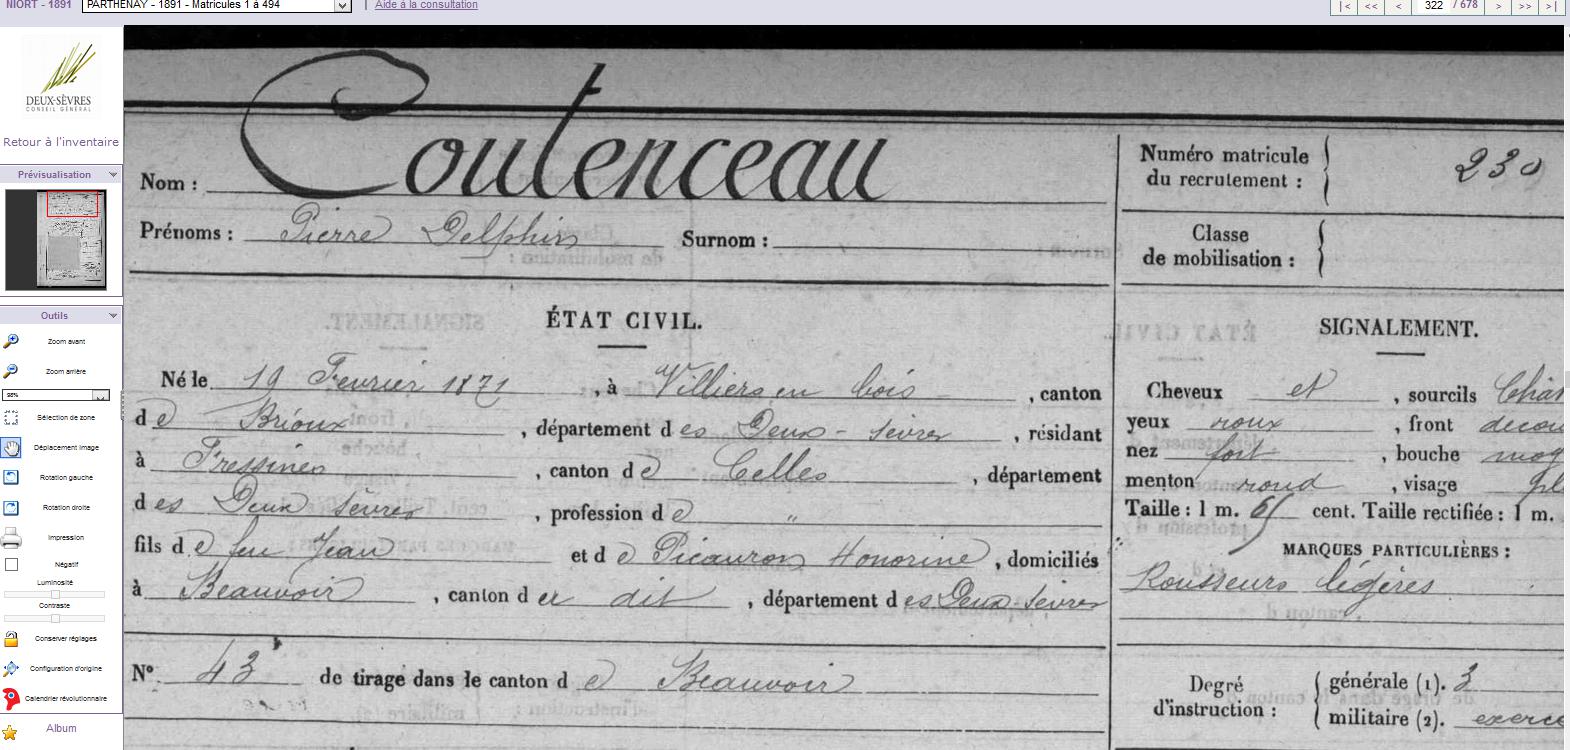 NIORT - 1891 PARTHENAY - 1891 - Matricules 1 à 494 | Aide à la consultation |< << < 322 / 678 > >> >|
DEUX-SÈVRES
CONSEIL GÉNÉRAL
Retour à l'inventaire
Prévisualisation
Outils
Zoom avant
Zoom arrière
98%
Sélection de zone
Déplacement image
Rotation gauche
Rotation droite
Impression
Négatif
Luminosité
Contraste
Conserver réglages
Configuration d'origine
Calendrier révolutionnaire
Album
Nom : Coutenceau
Prénoms : Pierre Delphin Surnom :
Numéro matricule
du recrutement : 230
Classe
de mobilisation :
ÉTAT CIVIL.
Né le 19 Fevrier 1871, à Villiers en bois, canton
de Brioux, département des Deux-Sèvres, résidant
à Fressines, canton de Celles, département
des Deux Sèvres, profession de "
fils de feu Jean et de Picauron Honorine, domiciliés
à Beauvoir, canton du dit, département des Deux Sèvres
N° 43 de tirage dans le canton de Beauvoir
SIGNALEMENT.
Cheveux et, sourcils Chat
yeux roux, front decou
nez fort, bouche moy
menton rond, visage
Taille : 1 m. 65 cent. Taille rectifiée : 1 m.
MARQUES PARTICULIÈRES :
Rousseurs légères
Degré
d'instruction :
générale (1). 3
militaire (2). exerc